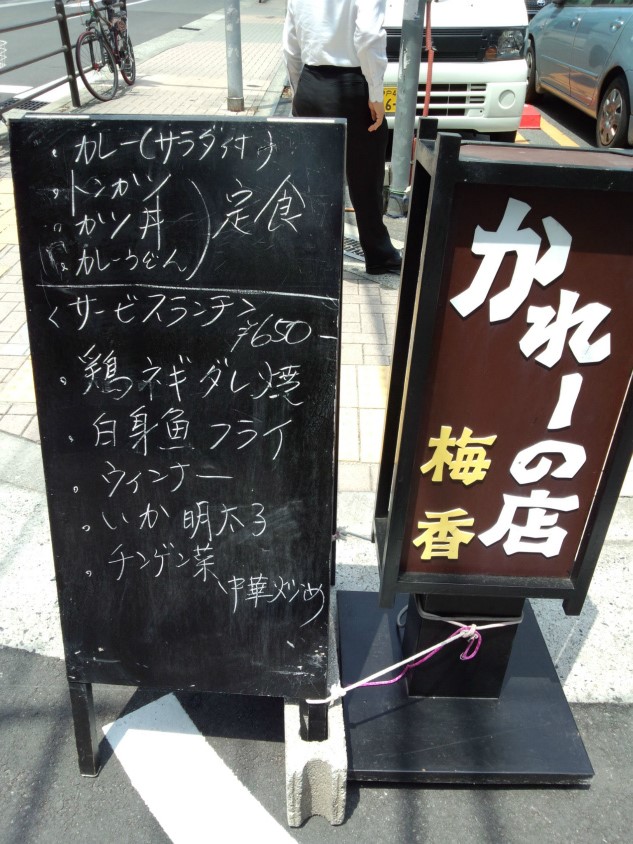 。カレー(サラダ付)
。トンカツ
。カツ丼
カレーうどん
定食
<サービスランチ>
¥650-
。鶏ネギダレ焼
。白身魚フライ
。ウィンナー
。いか明太子
。チンゲン菜
中華炒め
かれーの店
梅香